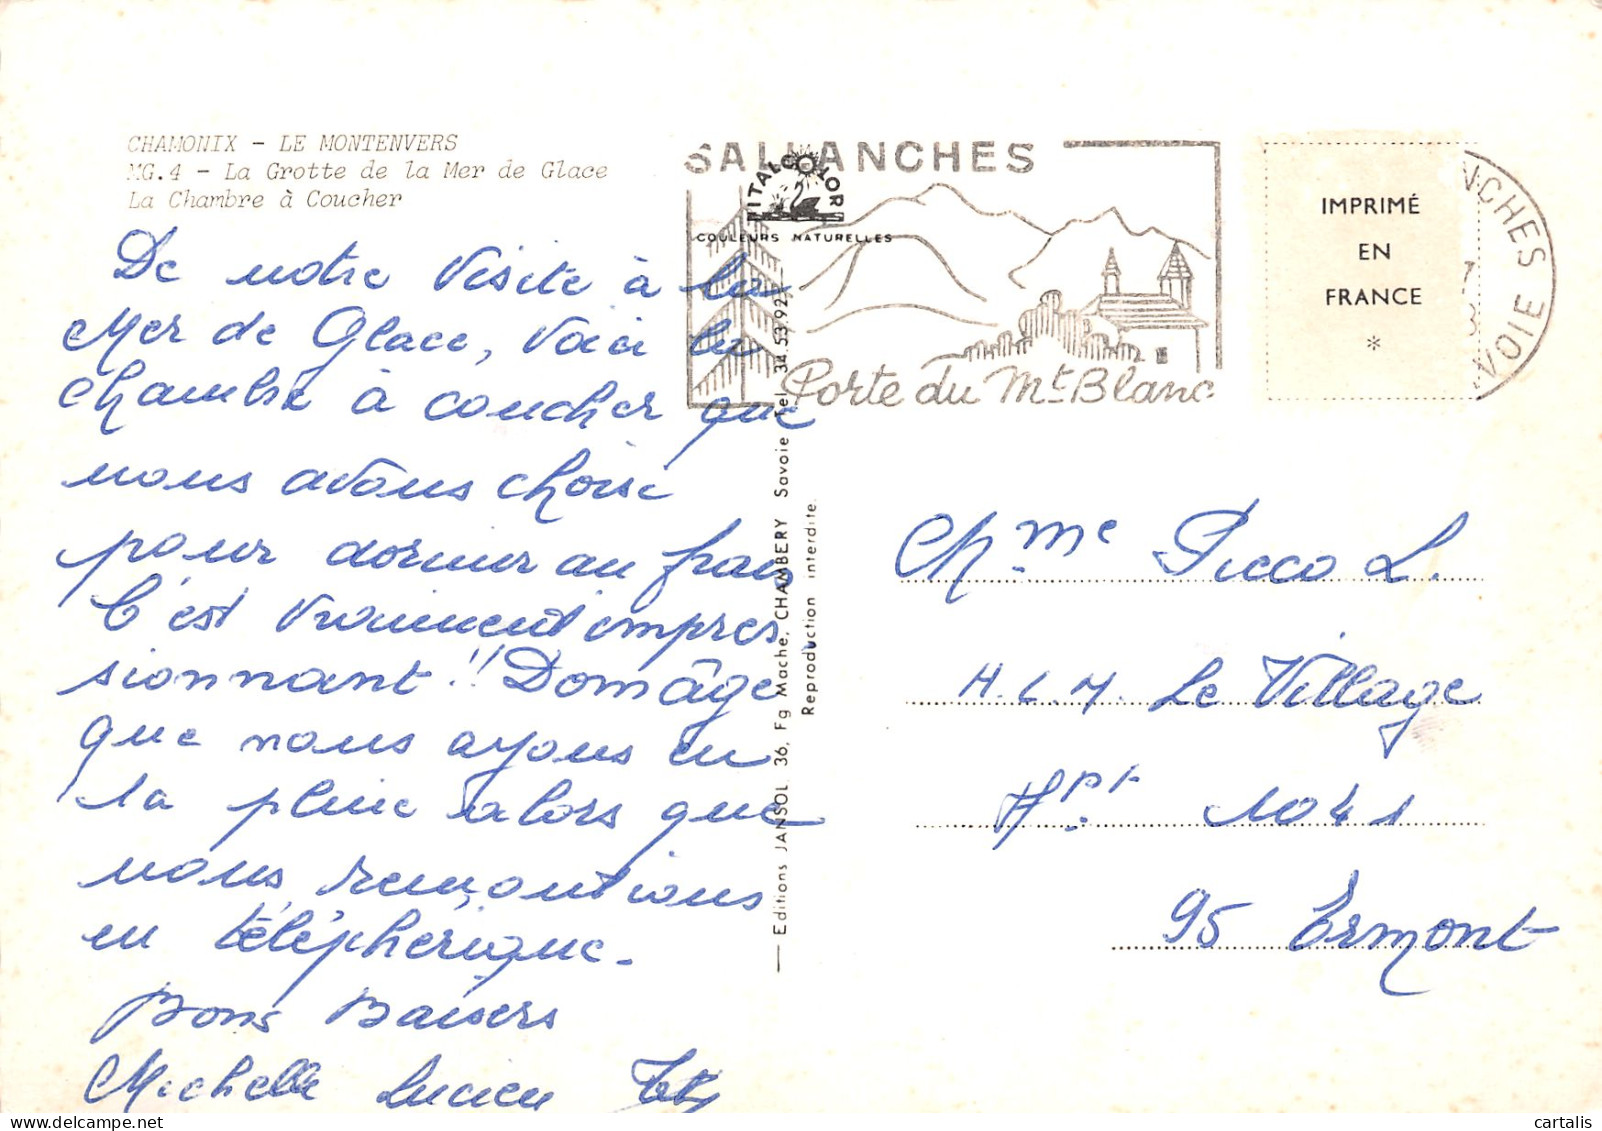 CHAMONIX - LE MONTENVERS
MG.4 - La Grotte de la Mer de Glace
La Chambre à Coucher
De notre visite à la
Mer de Glace, voici la
chambre à coucher que
nous avons choisi
pour dormir au frais
C'est vraiment impres
sionnant !! Domâge
que nous ayons eu
la pluie alors que
nous remontions
en téléphérique.
Bons Baisers
Michelle Lucien
SALLANCHES
VITALCOLOR
COULEURS NATURELLES
Porte du Mt Blanc
— Editions JANSOL. 36, Fg Mache, CHAMBERY Savoie Tel. 34.53.92
Reproduction interdite.
IMPRIMÉ
EN
FRANCE
*
NCHES
VOIE
Mme Picco L.
H.L.M. Le Village
Apt. 1041
95 Ermont
cartalis